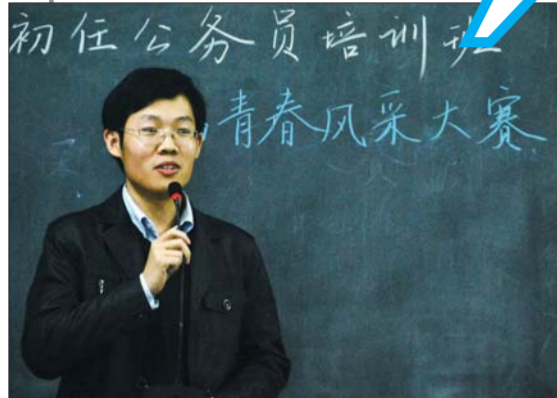 初任公务员培训班
青春风采大赛